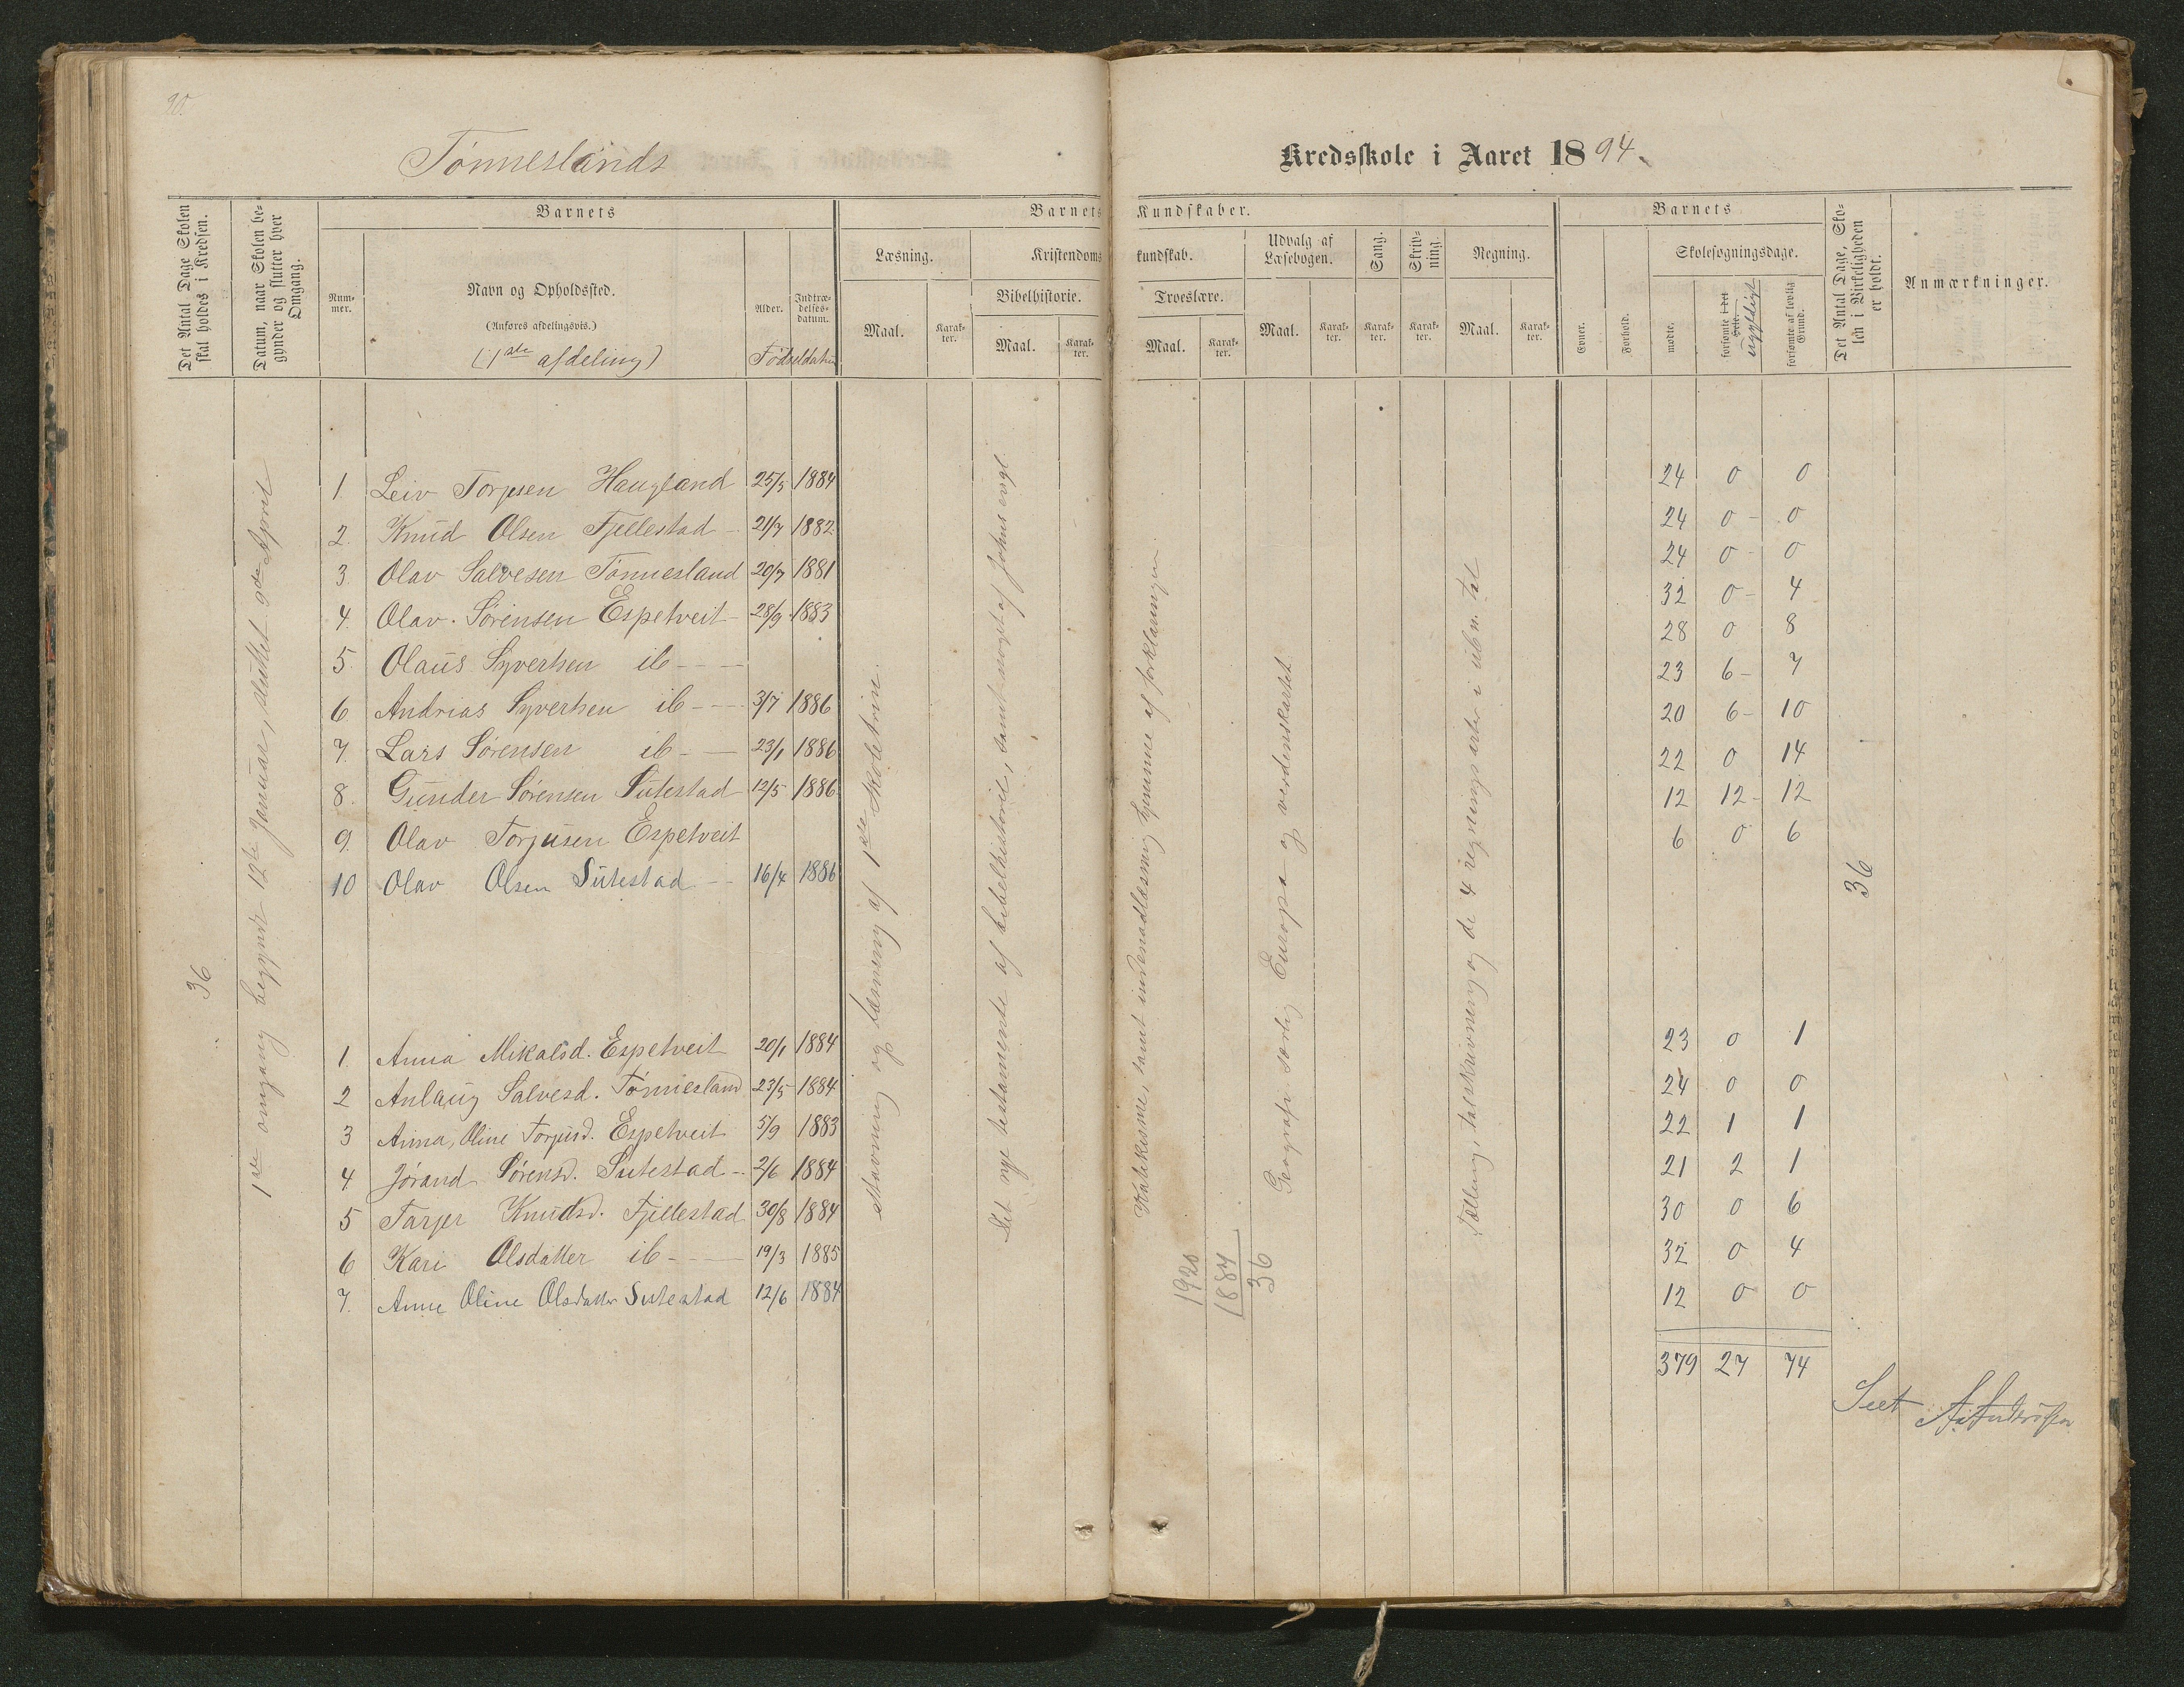 90
Tønneslands
Kredsskole i Aaret 1894.
Det Antal Dage Skolen skal holdes i Kredsen.
Datum, naar Skolen begynder og slutter hver Omgang.
Barnets
Nummer.
Navn og Opholdssted.
(Anføres afdelingsvis.)
(1ste afdeling)
Alder.
Indtrædelsesdatum.
Fødseldatum
Barnets Kundskaber.
Læsning.
Maal.
Karakter.
Kristendomskundskab.
Bibelhistorie.
Maal.
Karakter.
Troeslære.
Maal.
Karakter.
Udvalg af Læsebogen.
Maal.
Karakter.
Sang.
Karakter.
Skrivning.
Karakter.
Regning.
Maal.
Karakter.
Barnets
Evner.
Forhold.
Skolesøgningsdage.
mødte.
forsømte i det Hele.
ugyldigt
forsømte af lovlig Grund.
Det Antal Dage, Skolen i Virkeligheden er holdt.
Anmærkninger.
36
1ste omgang begyndt 12te Januar, sluttet 9de April
1 Leiv Torjusen Haugland 25/5 1884 24 0 0
2. Knud Olsen Fjellestad 21/7 1882 24 0 0
3. Olav Salvesen Tønnesland 20/7 1881 24 0 0
4. Olav Sørensen Espetveit 28/9 1883 32 0 4
5. Olaus Syvertsen ib 28 0 8
6. Andrias Syvertsen ib 3/7 1886 23 6 7
7. Lars Sørensen ib 23/1 1886 20 6 10
8. Gunder Sørensen Sutestad 12/5 1886 22 0 14
9. Olav Torjusen Espetveit 12 12 12
10 Olav Olsen Sutestad 16/4 1886 6 0 6
36
1. Anna Mikalsd. Espetveit 20/1 1884 23 0 1
2 Anlaug Salvesd. Tønnesland 23/5 1884 24 0 0
3 Anna Oline Torjusd. Espetveit 5/9 1883 22 1 1
4. Jørand Sørensd. Sutestad 2/6 1884 21 2 1
5 Tarjer Knudsd. Fjellestad 30/8 1884 30 0 6
6 Kari Olsdatter ib 19/3 1885 32 0 4
7. Anne Oline Olsdatter Sutestad 12/6 1884 12 0 0
379 27 74
Stavning og læsning af 1ste skoletrin.
Det nye testamente af bibelhistorie, samt noget af Johns evgl.
Katekisme, samt indenadlæsning hjemme af forklaringen.
Geografi særlig Europa og verdenskartet
Tælling, talskrivning og de 4 regningsarter i ubn. tal
1920
1884
36
Seet